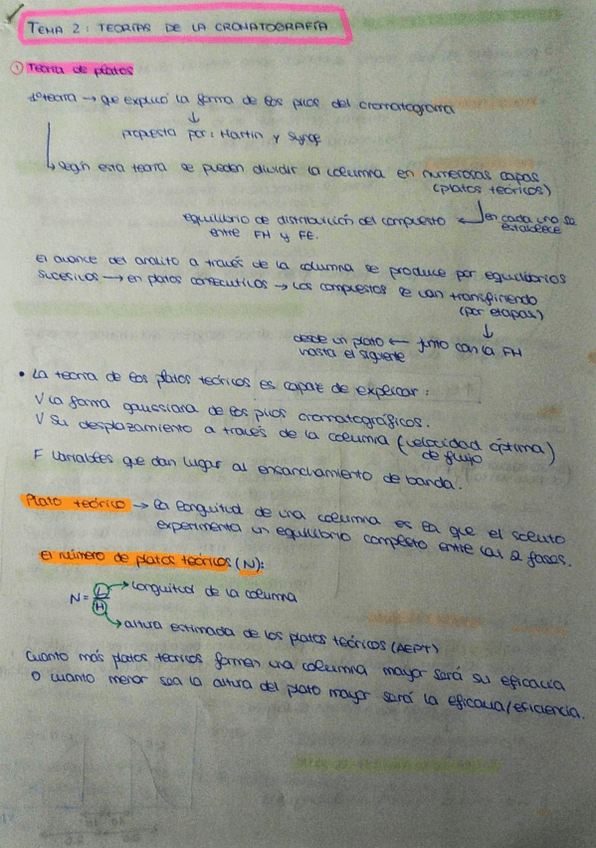 TEMA 2: TEORÍAS DE LA CROMATOGRAFÍA
① Teoría de platos
1ª teoría → que explicó la forma de los picos del cromatograma
↓
propuesta por: Martin y Synge
según esta teoría se pueden dividir la columna en numerosas capas
(platos teóricos)
equilibrio de distribución del compuesto ← en cada uno se
entre FH y FE. establece
El avance del analito a través de la columna se produce por equilibrios
sucesivos → en platos consecutivos → Los compuestos se van transfiriendo
(por etapas)
↓
desde un plato ← junto con la FH
hasta el siguiente
• La teoría de los platos teóricos es capaz de explicar:
V La forma gaussiana de los picos cromatográficos.
V Su desplazamiento a través de la columna (velocidad óptima)
de flujo
F Variables que dan lugar al ensanchamiento de banda.
Plato teórico → la longitud de una columna es la que el soluto
experimenta un equilibrio completo entre las 2 fases.
El número de platos teóricos (N):
N = L/H → Longitud de la columna
→ altura estimada de los platos teóricos (AEPT)
Cuanto más platos teóricos formen una columna mayor será su eficacia
o cuanto menor sea la altura del plato mayor será la eficacia/eficiencia.